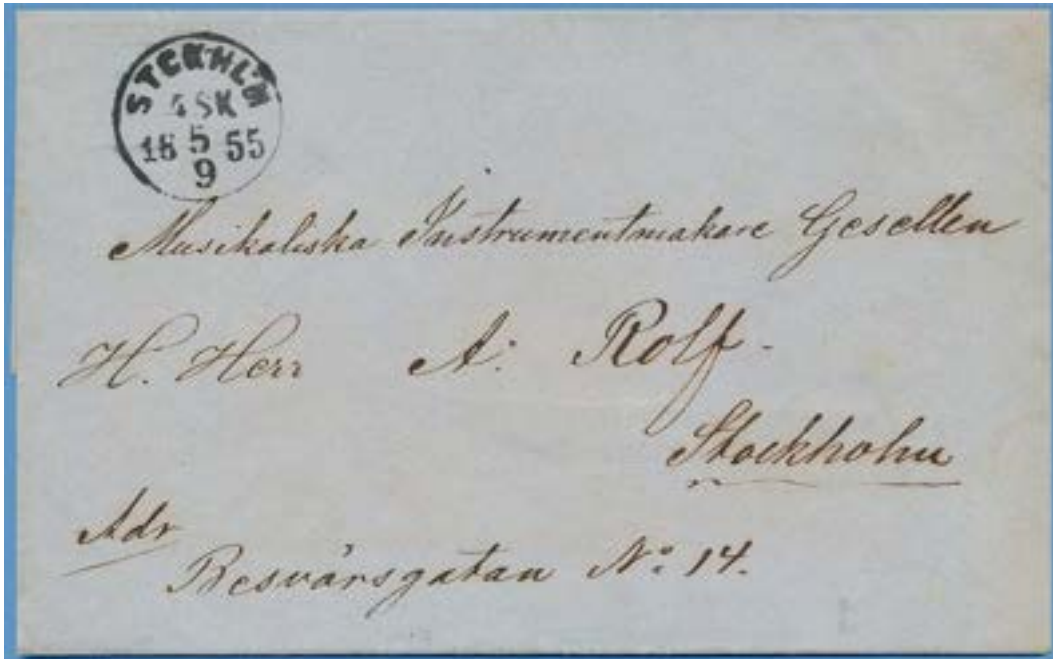 STCKHLM
4 SK
18 5 55
9
Musikaliska Instrumentmakare Gesellen
H. Herr A. Rolf.
Stockholm
Adr
Besvärsgatan No 14.